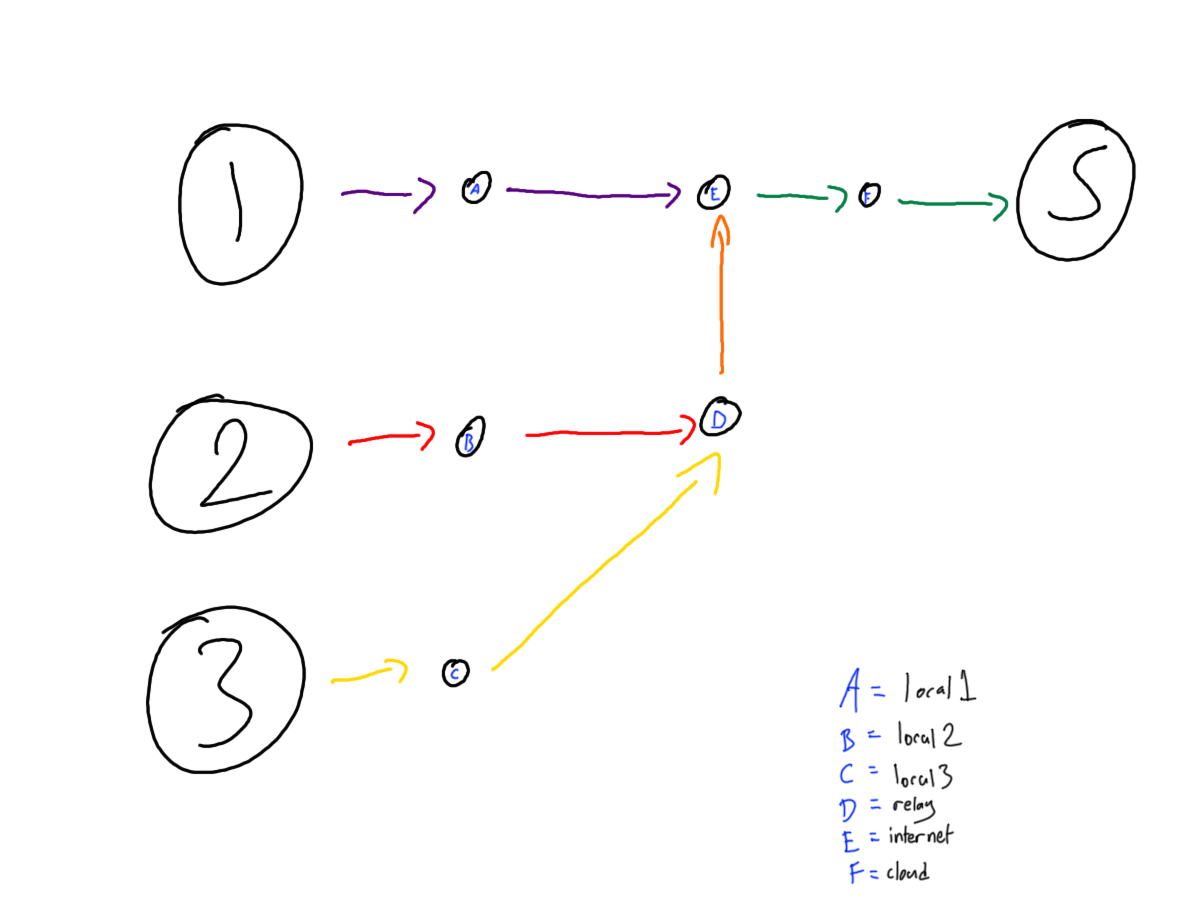 1
A
E
F
S
2
B
D
3
C
A = local 1
B = local 2
C = local 3
D = relay
E = internet
F = cloud